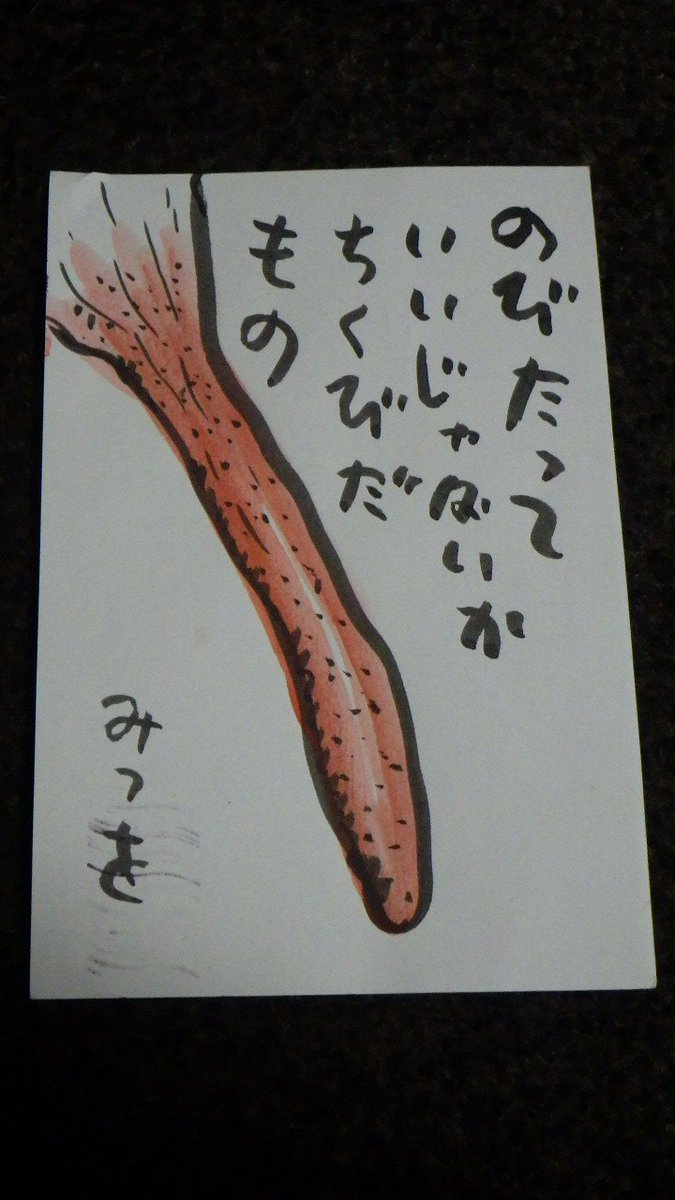 のびたって
いいじゃないか
ちくびだ
もの
みつを